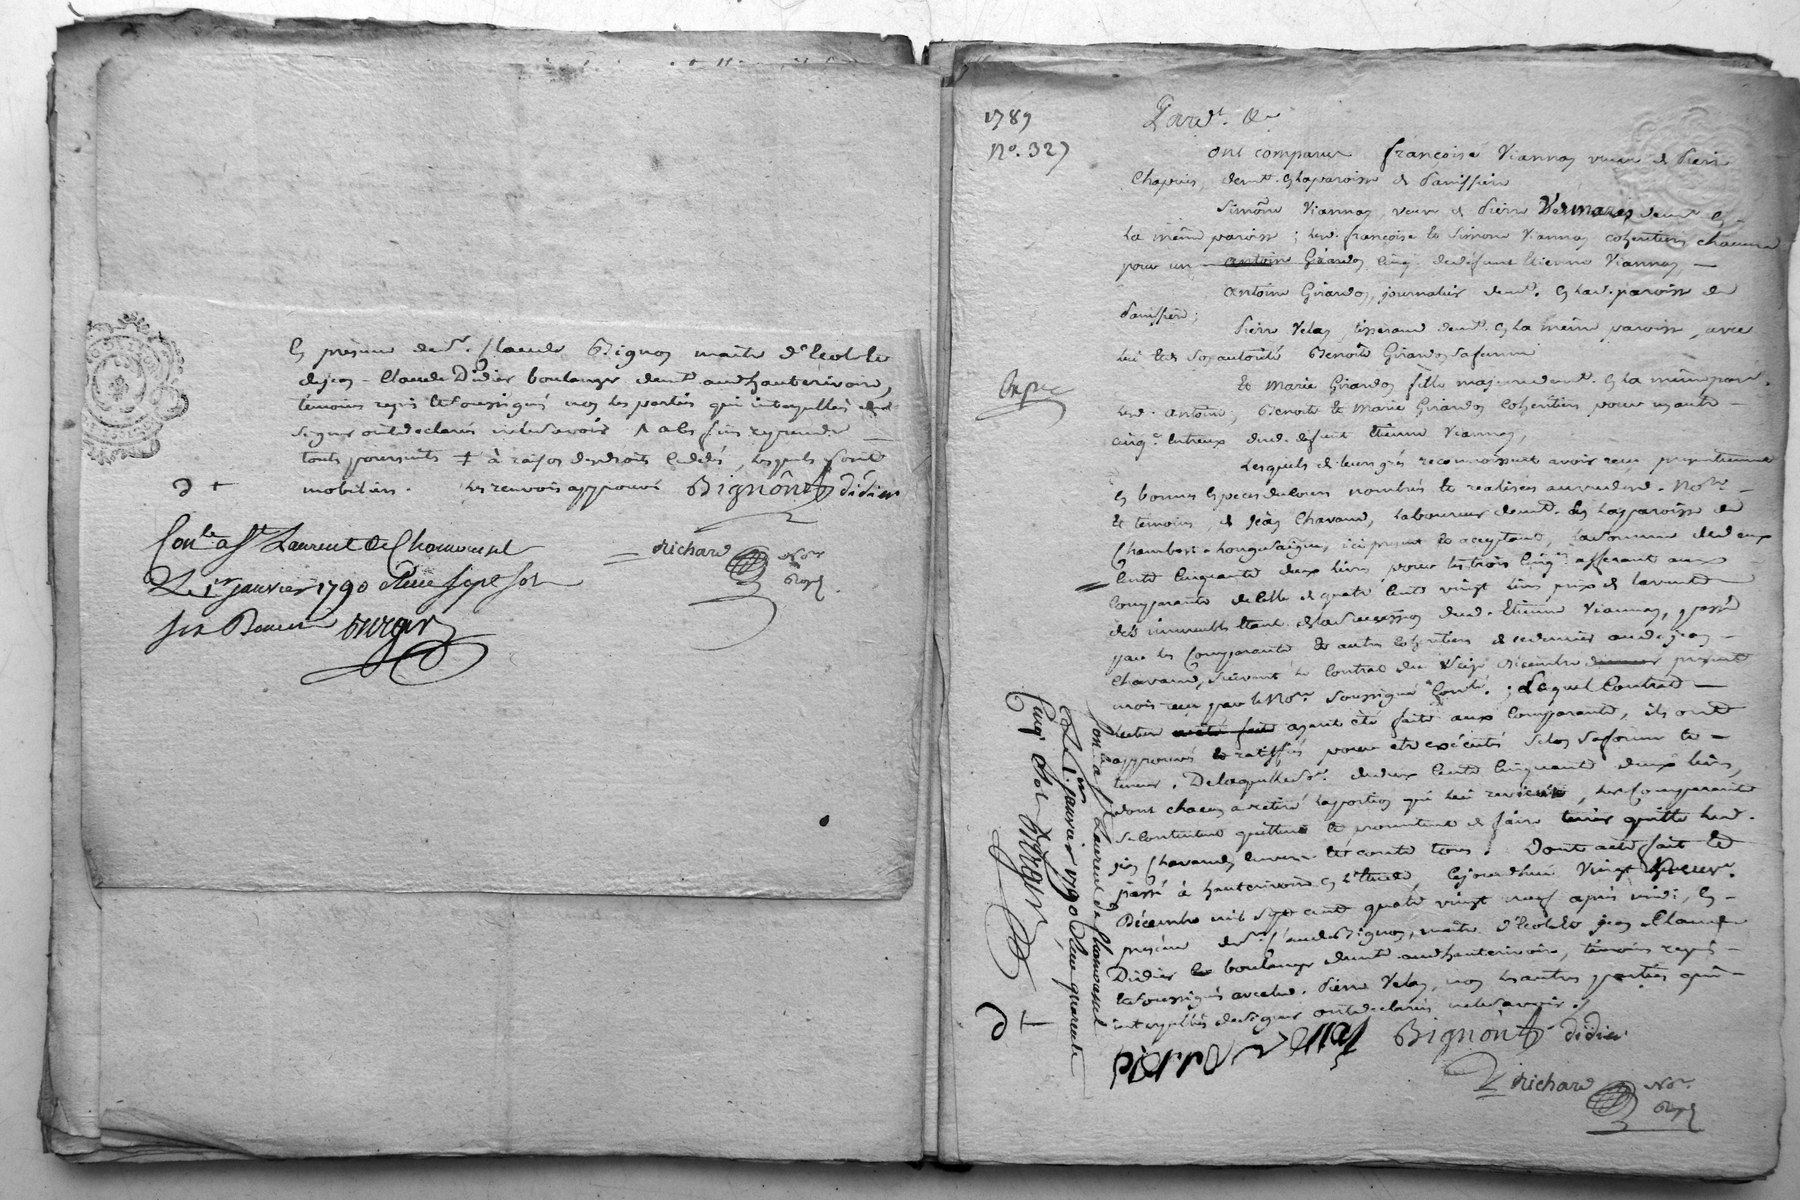 En présence de Sr. Claude Bignon maitre d'ecole et
de jean - Claude Didier boulanger demt. audhauterivoire,
temoins requis et soussignés non les parties qui interpellées de
signer ont declarés ne le savoir / a les fins reprendre
touts poursuits ‡ à raison des droits cedés, lesquels sont
mobiliers. les renvois approuvés Bignon didier
Conlé. a St. Laurent de Chamousset
Le 1er janvier 1790 Reçu sept sols
six Deniers
richard Nore
Royl
1789
No. 327
Pardt. &a
ont comparu françoise Viannay veuve de Pierre
Chapuis, demt. en la paroisse de Panissière
Simone Viannay, veuve de Pierre demt. en
la même paroisse ; lesd. françoise et Simone Viannay cohéritiers chacune
pour un antoine Girardon cinqe. dudéfunt Etienne Viannay
antoine Girardon, journalier demt. en lad. paroisse de
Panissière ;
Pierre Velay tisserand demt. en la même paroisse, avec
lui et de son autorité Benoite Girardon sa femme
Et Marie Girardon fille majeure demt. en la même par.
lesd. antoine, Benoite et Marie Girardon cohéritiers pour un autre
cinqe. entreux dud. défunt Etienne Viannay,
Expée
Lesquels de leurs grés reconnoissent avoir reçu présentement
en bonnes especes de cours nombrés et realisées au vu dud. Nore.
et temoins, de jean Chavand, laboureur demt. en la paroisse de
Chambost-Longuesaigne, ici présent et acceptant, la somme de deux
cents cinquante deux livres pour les trois cinqe. afferant aux
Comparants de celle de quatre cents vingt livres prix de la vente
des immeubles étant de la succession dud. Etienne Viannay, passée
par les Comparants et autres cohéritiers de ce dernier aud. jean
Chavand, suivant le contrat du Décembre dernier présent
mois reçu par le Nore soussigné Conlé. ; Lequel Contrat
lecture a été fait ayant été faite aux Comparants, ils ont
approuvés et ratiffiés pour etre exécuté selon sa forme et
teneur. De laquelle sme. de deux cents cinquante deux livres,
dont chacun a retiré la portion qui lui revient, les Comparants
se contentent quittent et promettent de faire tenir quitte led.
jean Chavand envers et contre tous. Dont acte fait et
passé à hauterivoire en l'Etude Cejourdhui Vingt
Décembre mil sept cent quatre vingt neuf après midi, En
présence de Sr. Claude Bignon, maitre d'ecole et jean Claude
Didier boulanger demts. audhauterivoire, temoins requis
et soussignés avec led. Pierre Velay, non les autres parties qui
interpellées de signer ont declarés ne le savoir /
Bignon didier
richard Nore.
Royl
Conlé. a St Laurent de Chamousset
Le 1er. janvier 1790 Reçu quarante
Cinq Sols